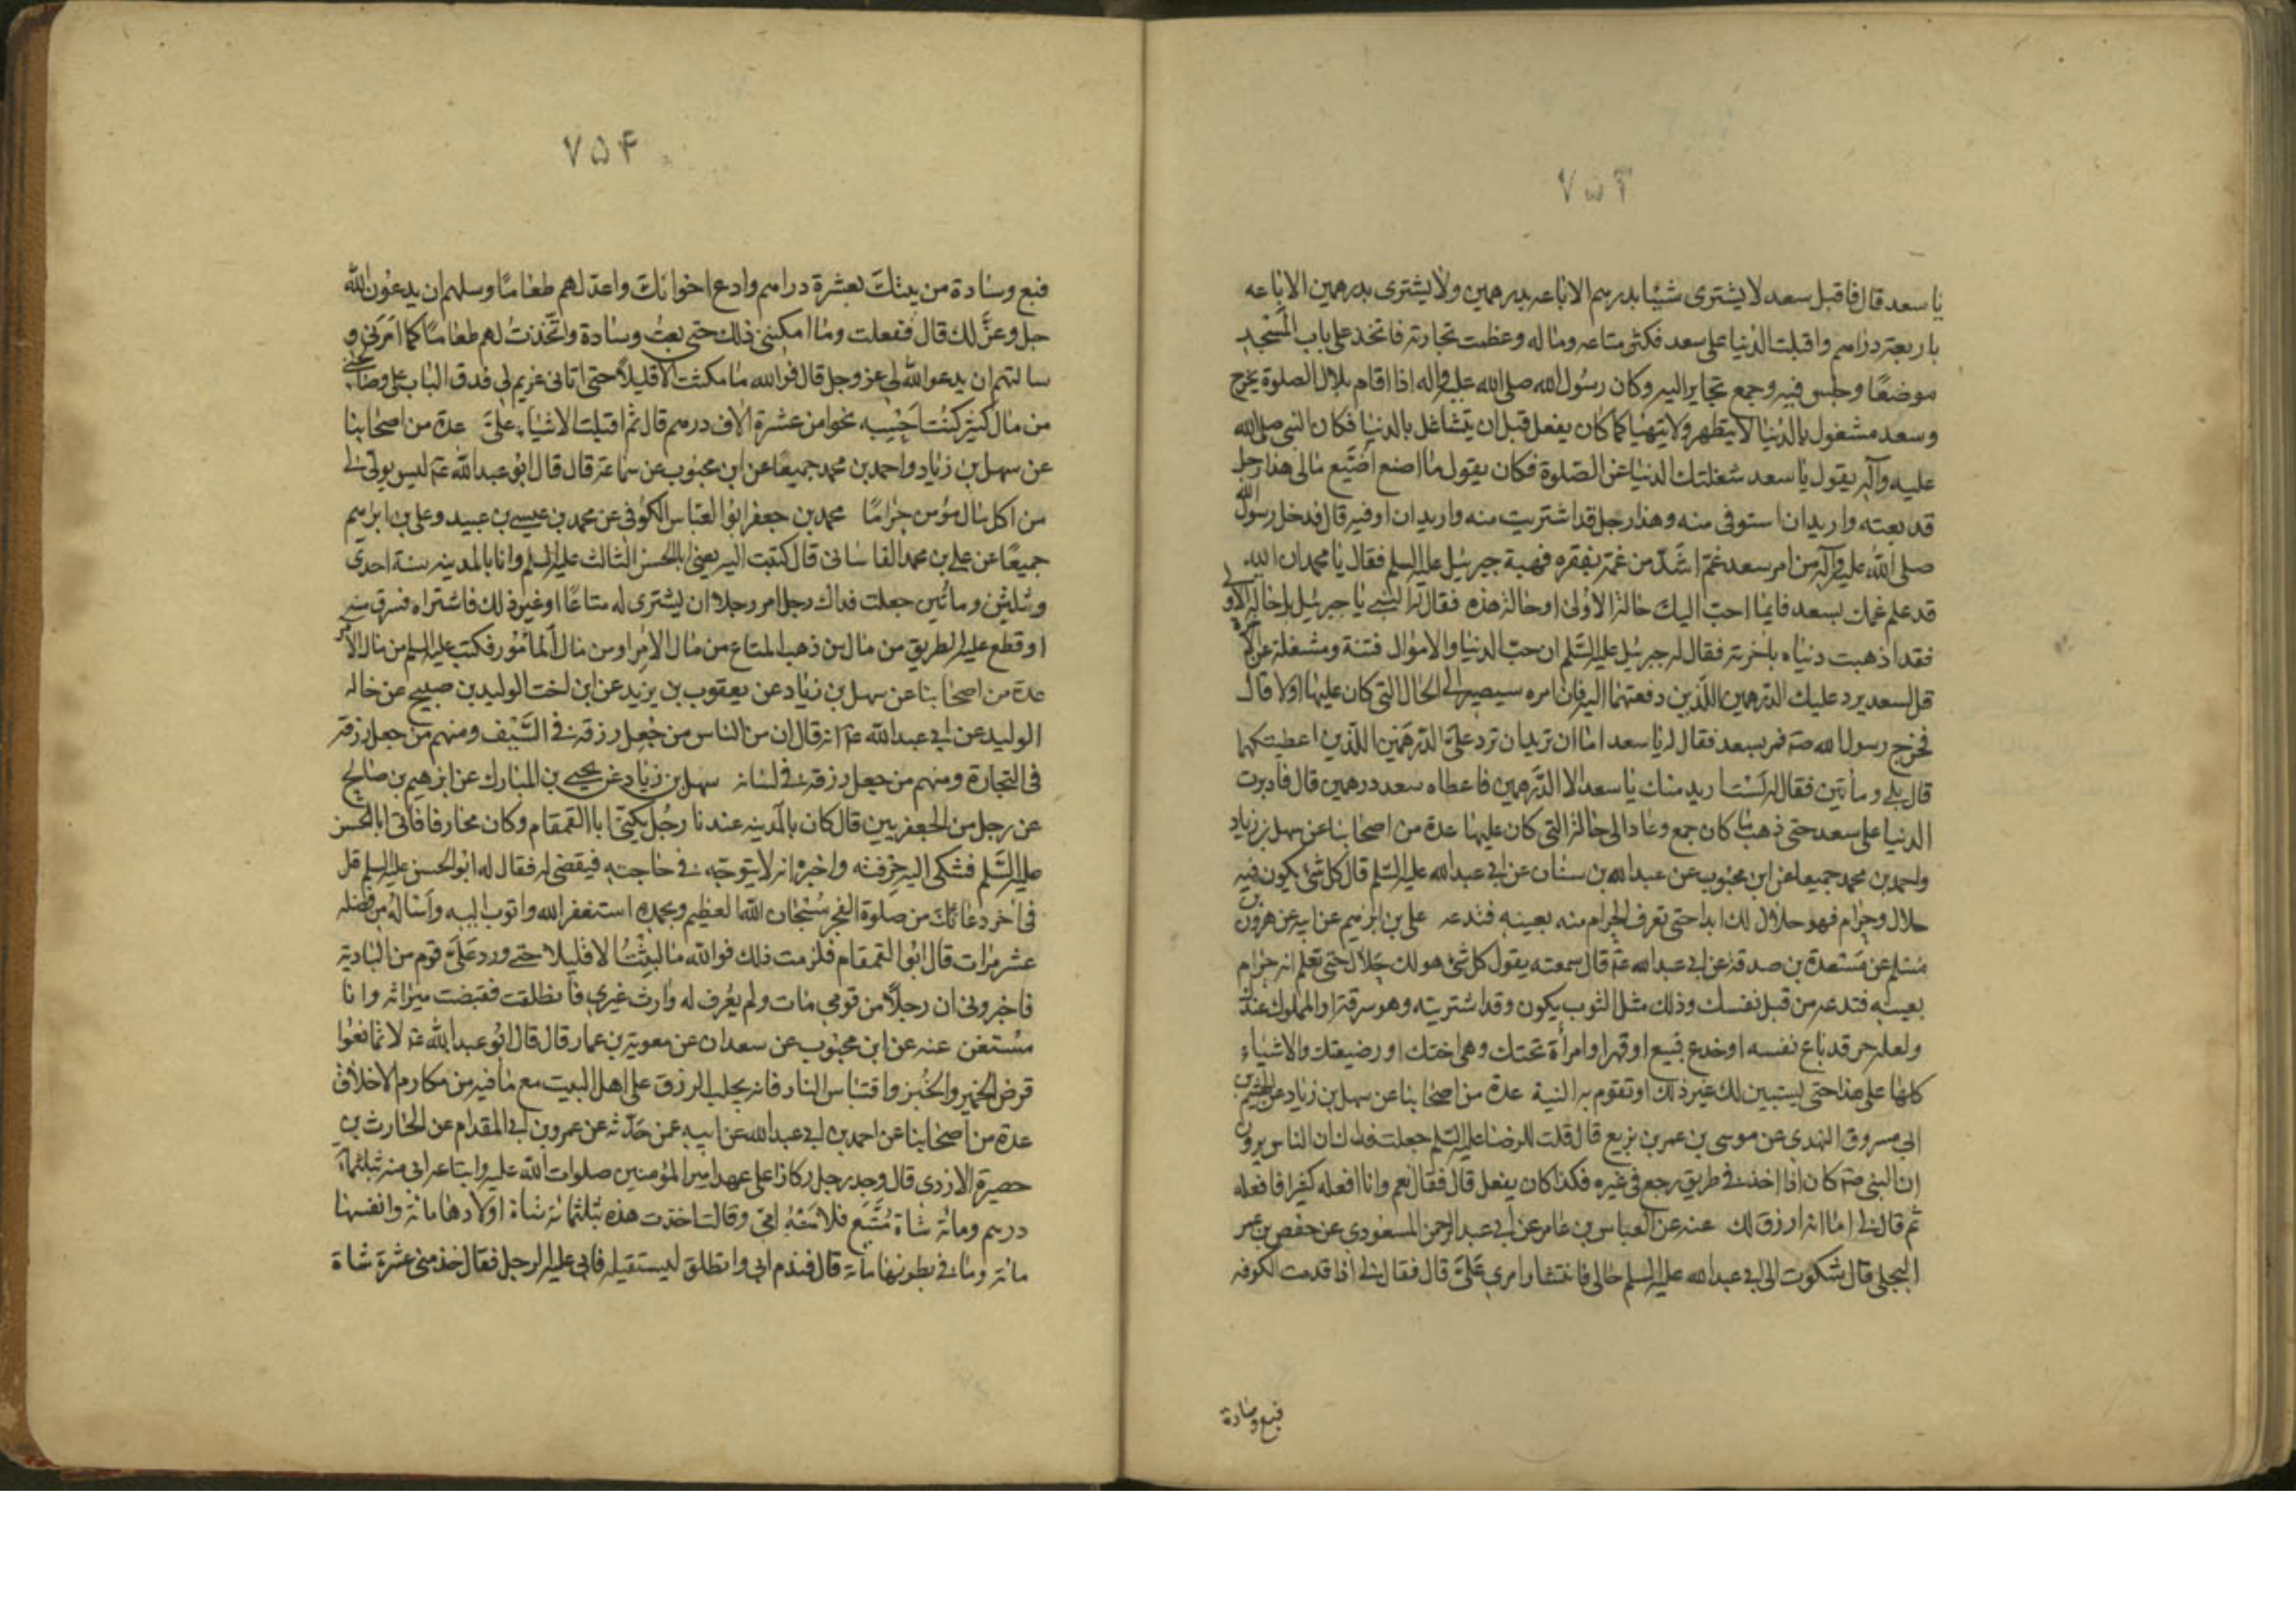 ٧٥٣
يا سعد قال فاقبل سعد لا يشترى شيئا بدرهم الا باعه بدرهمين ولا يشترى بدرهمين الا باعه
باربعة دراهم واقبلت الدنيا على سعد فكثر متاعه وماله وعظمت تجارته فاتخذ على باب المسجد
موضعًا وجلس فيه وجمع تجايره اليه وكان رسول الله صلى الله عليه واله اذا اقام بلال الصلوة يخرج
وسعد مشغول بالدنيا لا يتطهر ولا يتهيا كما كان يفعل قبل ان يتشاغل بالدنيا فكان النبى صلى الله
عليه وآله يقول يا سعد شغلتك الدنيا عن الصلوة فكان يقول ما اصنع اضيع مالى هذا رجل
قد بعته واريد ان استوفى منه وهذا رجل قد اشتريت منه واريد ان اوفيه قال فدخل رسول الله
صلى الله عليه وآله من امر سعد غم اشدّ من غمه بفقره فهبط جبرئيل عليه السلم فقال يا محمد ان الله
قد علم غمك بسعد فايما احب اليك حاله الاولى او حاله هذه فقال له النبى يا جبرئيل بل حاله الاولى
فقد اذهبت دنياه باخرته فقال له جبرئيل عليه السّلم ان حبّ الدنيا والاموال فتنة ومشغلة عن الاخرة
قل لسعد يرد عليك الدرهمين اللّذين دفعتهما اليه فان امره سيصير الى الحال التى كان عليها اولا قال
فخرج رسول الله صه فمر بسعد فقال له يا سعد اما ان تريد ان ترد علىّ الدّرهمين اللّذين اعطيتكهما
قال بلى وماتين فقال له لست اريد منك يا سعد الا الدّرهمين فاعطاه سعد درهمين قال فادبرت
الدنيا على سعد حتى ذهب ما كان جمع وعاد الى حاله التى كان عليها عدة من اصحابنا عن سهل بن زياد
واحمد بن محمد جميعا عن ابن محبوب عن عبد الله بن سنان عن ابى عبد الله عليه السّلم قال كل شئ يكون فيه
حلال وحرام فهو حلال لك ابدا حتى تعرف الحرام منه بعينه فتدعه على بن ابرهيم عن ابيه عن هرون بن
مسلم عن مسعدة بن صدقة عن ابى عبد الله عم قال سمعته يقول كل شئ هو لك حلال حتى تعلم انه حرام
بعينه فتدعه من قبل نفسك وذلك مثل الثوب يكون وقد اشتريته وهو سرقة او المملوك عندك
ولعله حر قد باع نفسه او خدع فبيع او قهر او امرأة تحتك وهى اختك او رضيعتك والاشياء
كلها على هذا حتى يستبين لك غير ذلك او تقوم به البنية عدة من اصحابنا عن سهل بن زياد عن الهيثم بن
ابى مسروق النهدى عن موسى بن عمر بن بزيع قال قلت للرضا عليه السّلم جعلت فداك ان الناس يروون
ان النبى صه كان اذا اخذ فى طريق رجع فى غيره فكذا كان يفعل قال فقال نعم وانا افعله كثيرا فافعله
ثم قال لى اما انه ارزق لك عنه عن العباس بن عامر عن ابى عبد الرحمن المسعودى عن حفص بن عمر
البجلى قال شكوت الى ابى عبد الله عليه السلم حالى وانتشار امرى علىّ قال فقال لى اذا قدمت الكوفه
فبع وسادة
٧٥۴
فبع وسادة من بيتك بعشرة دراهم وادع اخوانك واعدّ لهم طعامًا وسلهم ان يدعون الله
جل وعزّ لك قال ففعلت وما امكننى ذلك حتى بعت وسادة واتّخذت لهم طعامًا كما امرنى و
سالتهم ان يدعو الله لى عز وجل قال فوالله ما مكثت الا قليلاً حتى اتانى غريم لى فدق الباب على وصالحنى
من مال كثير كنت احسبه نحوا من عشرة الاف درهم قال ثم اقبلت الاشياء علىّ عدة من اصحابنا
عن سهل بن زياد واحمد بن محمد جميعًا عن ابن محبوب عن سماعة قال قال ابو عبد الله عم ليس بولى لى
من اكل مال مؤمن حرامًا محمد بن جعفر ابو العباس الكوفى عن محمد بن عيسى بن عبيد وعلى بن ابرهيم
جميعًا عن على بن محمد القاسانى قال كتبت اليه يعنى ابا الحسن الثالث عليه السلم وانا بالمدينه سنة احدى
وثلثين وماتين جعلت فداك رجل امر رجلا ان يشترى له متاعًا او غير ذلك فاشتراه فسرق منه
او قطع عليه الطريق من مال من ذهب المتاع من مال الامر او من مال المأمور فكتب عليه السلم من مال الامر
عدة من اصحابنا عن سهل بن زياد عن يعقوب بن يزيد عن ابن اخت الوليد بن صبيح عن خاله
الوليد عن ابى عبد الله عم انه قال ان من الناس من جعل رزقه فى السّيف ومنهم من جعل رزقه
فى التجارة ومنهم من جعل رزقه فى لسانه سهل بن زياد عن يحيى بن المبارك عن ابرهيم بن صالح
عن رجل من الجعفريين قال كان بالمدينة عندنا رجل يكنّى ابا القمقام وكان محارفا فاتى ابا الحسن
عليه السّلم فشكى اليه حرفته واخبره انه لا يتوجّه فى حاجته فيقضى له فقال له ابو الحسن عليه السلم قل
فى اخر دعائك من صلوة الفجر سبحان الله العظيم وبحمده استغفر الله واتوب اليه وأسأله من فضله
عشر مرات قال ابو القمقام فلزمت ذلك فوالله ما لبثت الا قليلا حتى ورد علىّ قوم من البادية
فاخبرونى ان رجلًا من قومى مات ولم يعرف له وارث غيرى فانطلقت فقبضت ميراثه وانا
مستغن عنه عن ابن محبوب عن سعدان عن معوية بن عمار قال قال ابو عبد الله عم لا تمانعوا
قرض الخمير والخبز واقتباس النار فانه يجلب الرزق على اهل البيت مع ما فيه من مكارم الاخلاق
عدة من اصحابنا عن احمد بن ابى عبد الله عن ابيه عمن حدّثه عن عمرو بن ابى المقدام عن الحارث بن
حصيرة الازدى قال وجد رجل ركازا على عهد امير المؤمنين صلوات الله عليه وابتاعه ابى منه بثلثمائة
درهم ومائة شاة متبع فلامته امى وقالت اخذت هذه بثلثمائة شاة اولادها مائة وانفسها
مائة وما فى بطونها مائة قال فندم ابى وانطلق ليستقيله فابى عليه الرجل فقال خذ منى عشرة شاة